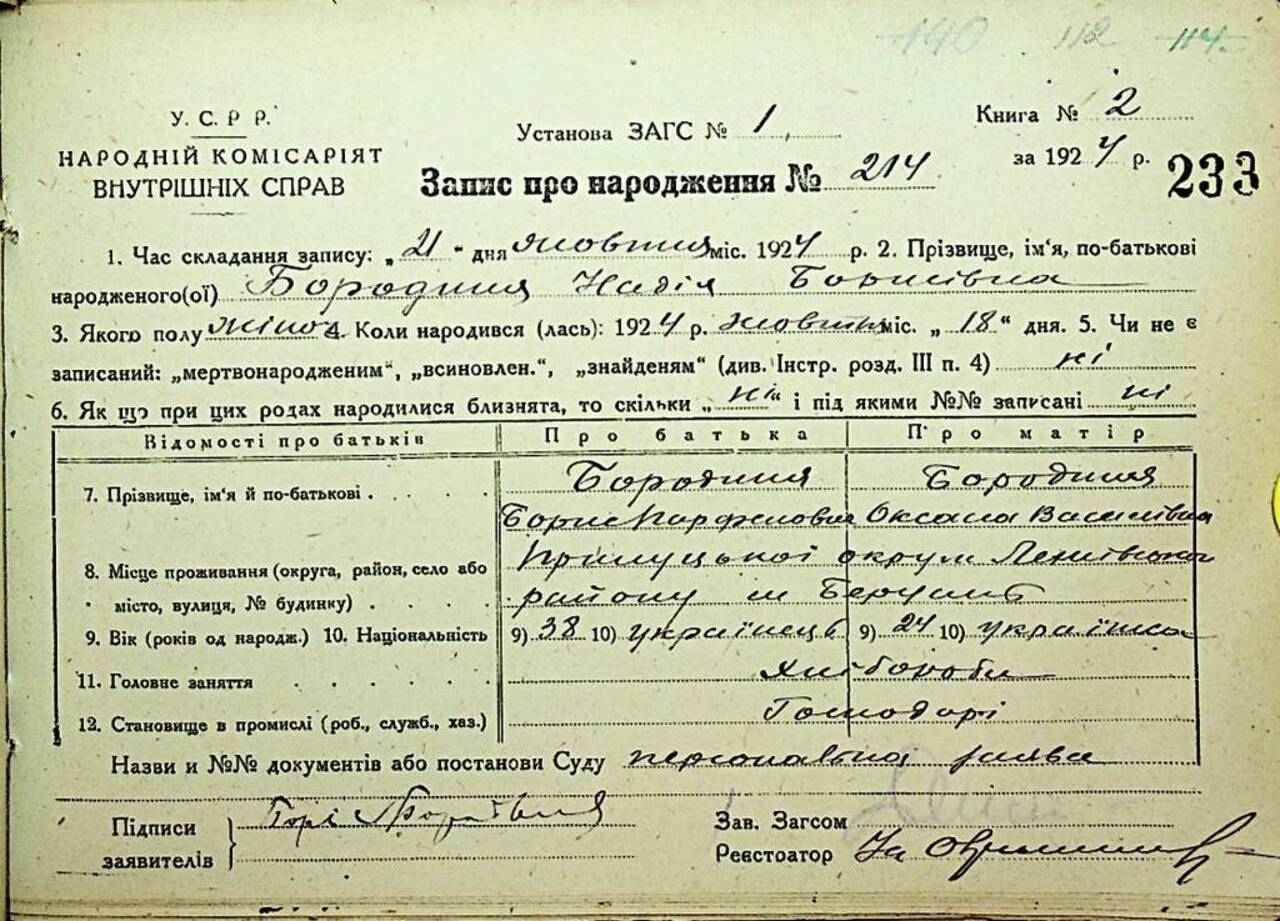 140 112 114.
У. С. Р Р.
НАРОДНІЙ КОМІСАРІЯТ
ВНУТРІШНІХ СПРАВ
Установа ЗАГС № 1
Запис про народження № 214
Книга № 2
за 1924 р.
233
1. Час складання запису: „21“ дня жовтня міс. 1924 р. 2. Прізвище, ім‘я, по-батькові
народженого(ої) Бородиня Надія Борисівна
3. Якого полу жіноч. 4. Коли народився (лась): 1924 р. жовтня міс. „18“ дня. 5. Чи не є
записаний: „мертвонародженим“, „всиновлен.“, „знайденям“ (див. Інстр. розд. III п. 4) ні
6. Як що при цих родах народилися близнята, то скільки „ні“ і під якими №№ записані ні
Відомості про батьків Про батька Про матір
7. Прізвище, ім‘я й по-батькові . . . . Бородиня Бородиня
Борис Парфенович Оксана Василівна
8. Місце проживання (округа, район, село або Прилуцької округи
місто, вулиця, № будинку) . . . . району м
9. Вік (років од народж.) 10. Національність 9) 38 10) українець 9) 24 10) українка
11. Головне заняття . . . . . . Хлібороби
12. Становище в промислі (роб., служб., хаз.) Господарі
Назви и №№ документів або постанови Суду персональна заява
Підписи
заявителів
Зав. Загсом
Реєстоатор